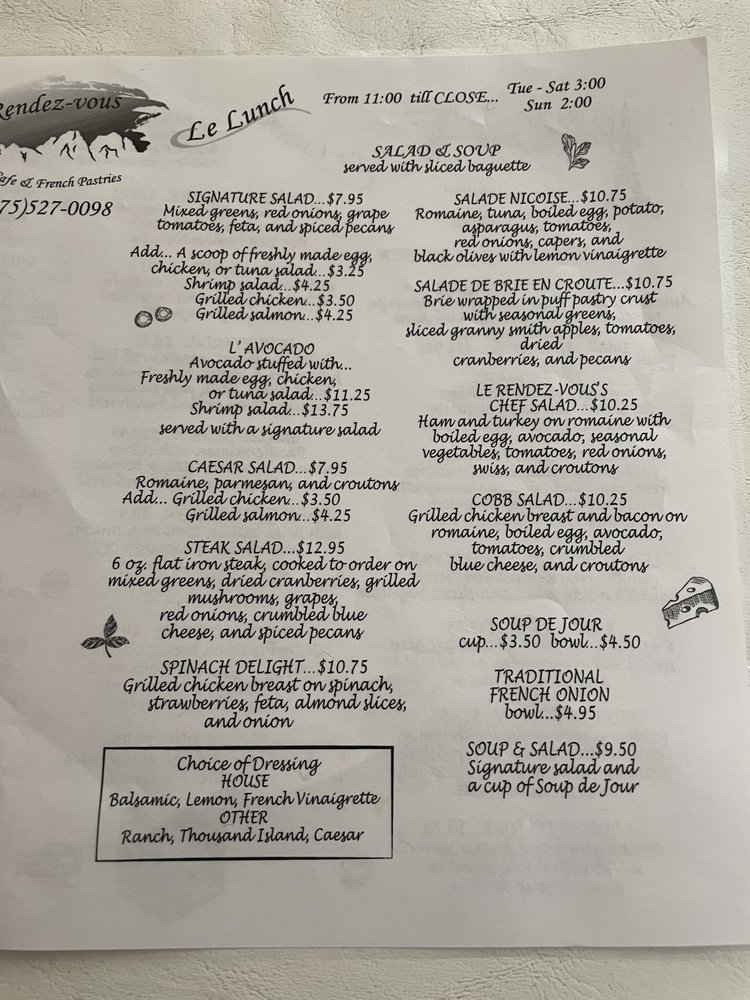 Rendez-vous
Cafe & French Pastries
75)527-0098
Le Lunch
From 11:00 till CLOSE... Tue - Sat 3:00
Sun 2:00
SALAD & SOUP
served with sliced baguette
SIGNATURE SALAD...$7.95
Mixed greens, red onions, grape
tomatoes, feta, and spiced pecans
Add... A scoop of freshly made egg,
chicken, or tuna salad...$3.25
Shrimp salad...$4.25
Grilled chicken...$3.50
Grilled salmon...$4.25
L' AVOCADO
Avocado stuffed with...
Freshly made egg, chicken,
or tuna salad...$11.25
Shrimp salad...$13.75
served with a signature salad
CAESAR SALAD...$7.95
Romaine, parmesan, and croutons
Add... Grilled chicken...$3.50
Grilled salmon...$4.25
STEAK SALAD...$12.95
6 oz. flat iron steak, cooked to order on
mixed greens, dried cranberries, grilled
mushrooms, grapes,
red onions, crumbled blue
cheese, and spiced pecans
SPINACH DELIGHT...$10.75
Grilled chicken breast on spinach,
strawberries, feta, almond slices,
and onion
Choice of Dressing
HOUSE
Balsamic, Lemon, French Vinaigrette
OTHER
Ranch, Thousand Island, Caesar
SALADE NICOISE...$10.75
Romaine, tuna, boiled egg, potato,
asparagus, tomatoes,
red onions, capers, and
black olives with lemon vinaigrette
SALADE DE BRIE EN CROUTE...$10.75
Brie wrapped in puff pastry crust
with seasonal greens,
sliced granny smith apples, tomatoes,
dried
cranberries, and pecans
LE RENDEZ-VOUS'S
CHEF SALAD...$10.25
Ham and turkey on romaine with
boiled egg, avocado, seasonal
vegetables, tomatoes, red onions,
swiss, and croutons
COBB SALAD...$10.25
Grilled chicken breast and bacon on
romaine, boiled egg, avocado,
tomatoes, crumbled
blue cheese, and croutons
SOUP DE JOUR
cup...$3.50 bowl...$4.50
TRADITIONAL
FRENCH ONION
bowl...$4.95
SOUP & SALAD...$9.50
Signature salad and
a cup of Soup de Jour